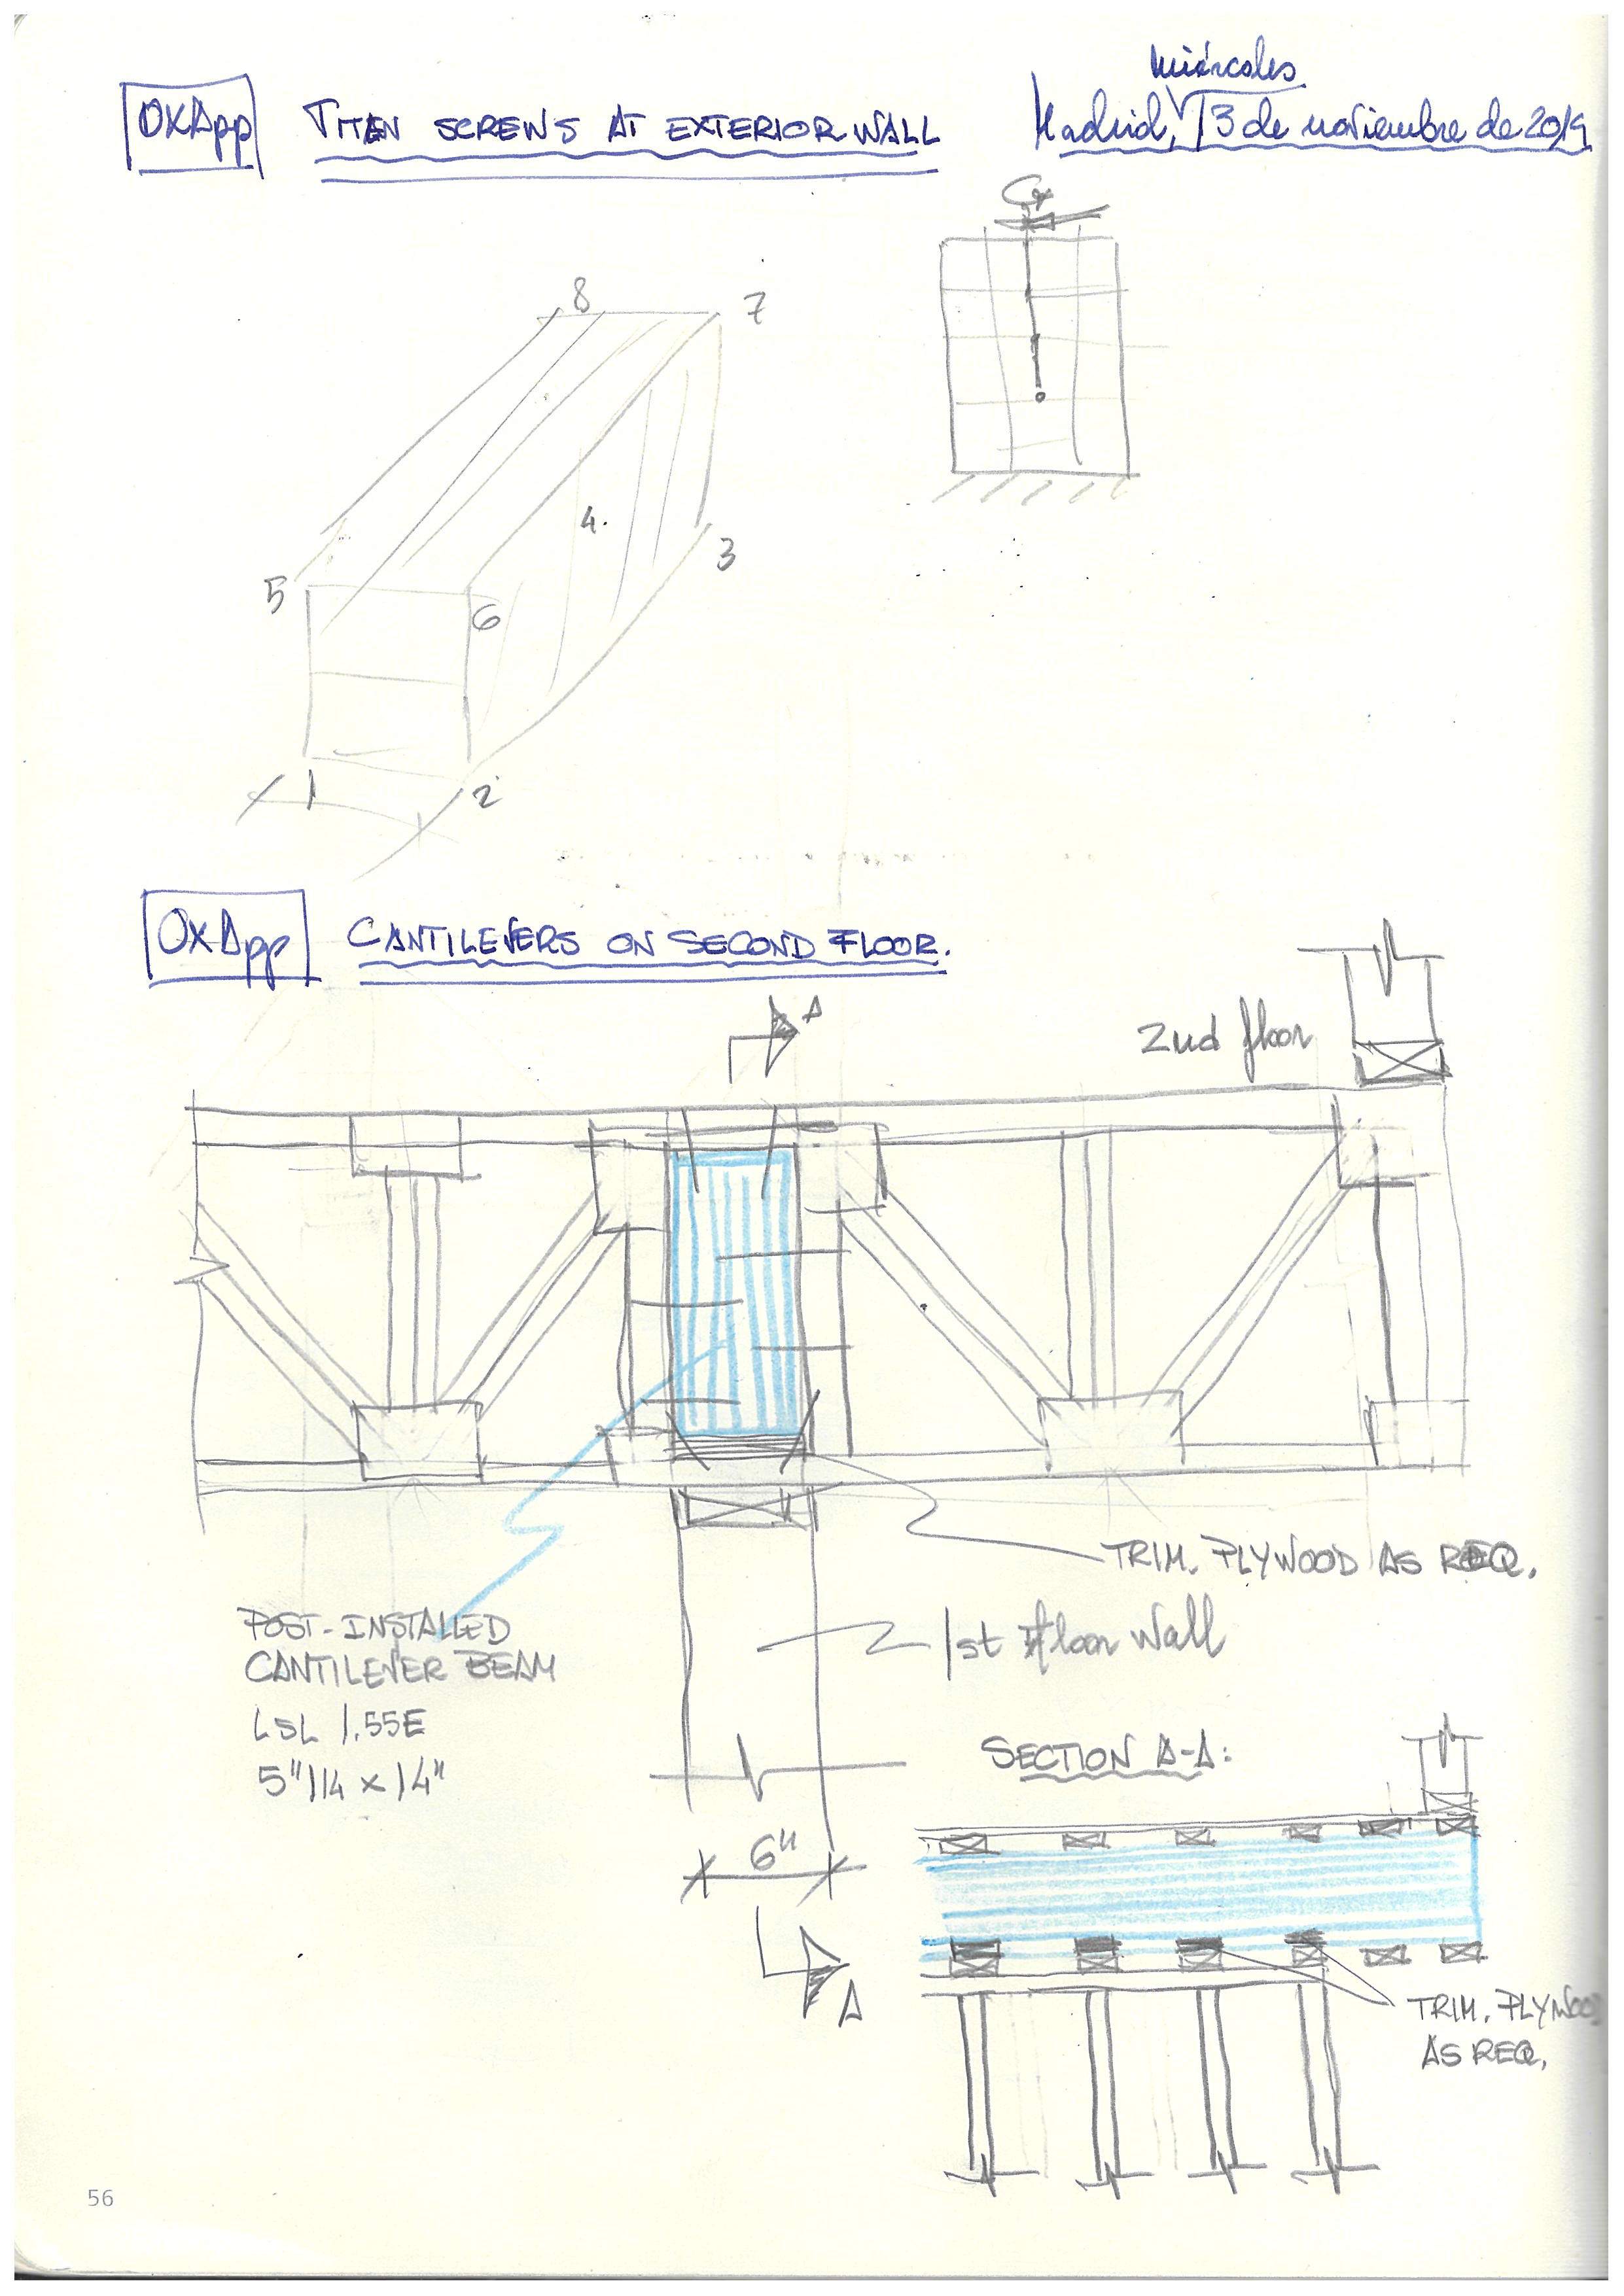 OXApp TITAN SCREWS AT EXTERIOR WALL
miércoles
Madrid, 13 de noviembre de 2019
8
7
4.
3
5
6
1
2
OXApp CANTILEVERS ON SECOND FLOOR.
A
2nd floor
TRIM. PLYWOOD AS REQ.
POST-INSTALLED
CANTILEVER BEAM
LSL 1.55E
5"1/4 x 14"
1st floor wall
SECTION A-A:
6"
A
TRIM. PLYWOOD
AS REQ.
56